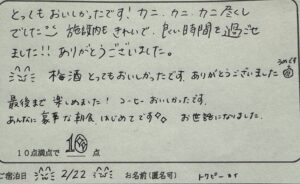 とってもおいしかったです！カニ、カニ、カニ尽くし
でした 施設内もきれいで、良い時間を過ごせ
ました!! ありがとうございました。
梅酒 とってもおいしかったです。ありがとうございました
最後まで 楽しめました！コーヒーおいしかったです。
あんなに豪華な朝食 はじめてです。お世話になりました。
10点満点で 10 点
ご宿泊日 2/22 お名前(匿名可)